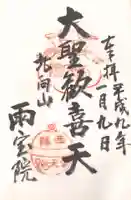 奉拝
平成九年
一月九日
大聖歓喜天
北向山
雨宝院